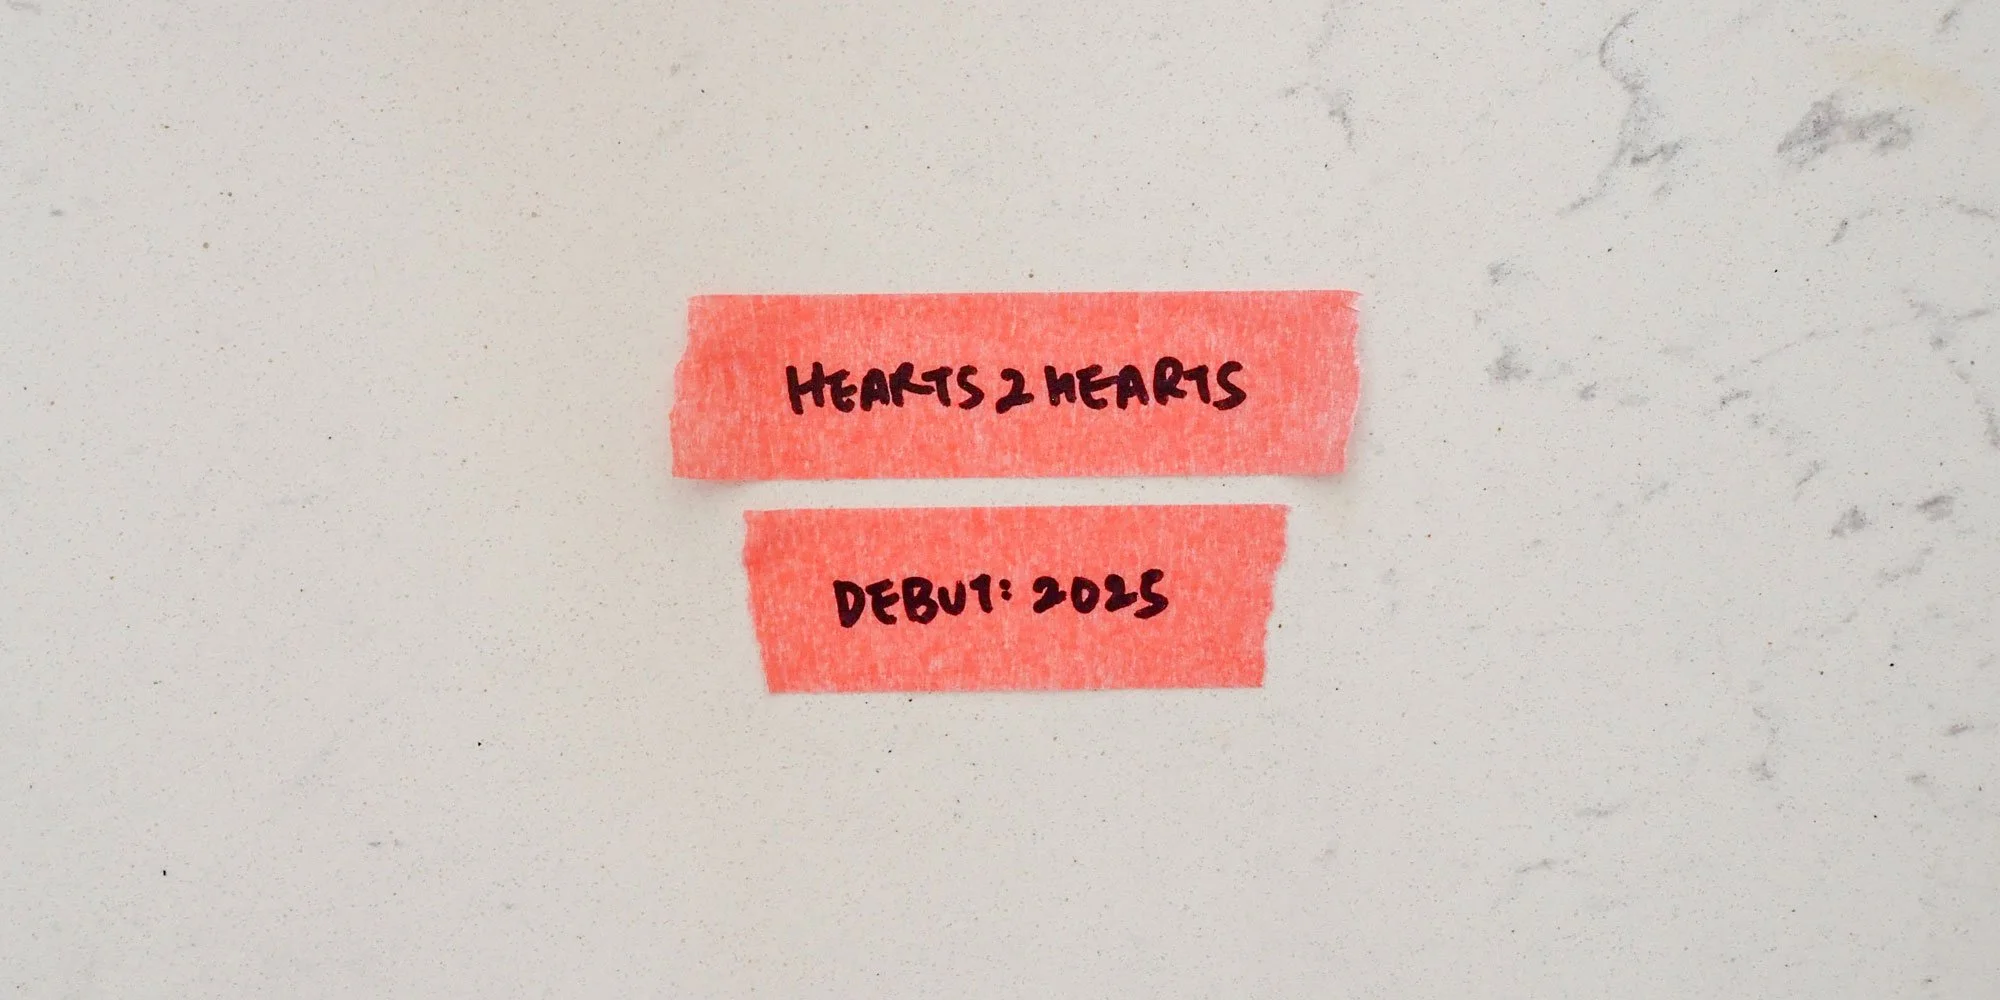 HEARTS 2 HEARTS
DEBUT: 2025